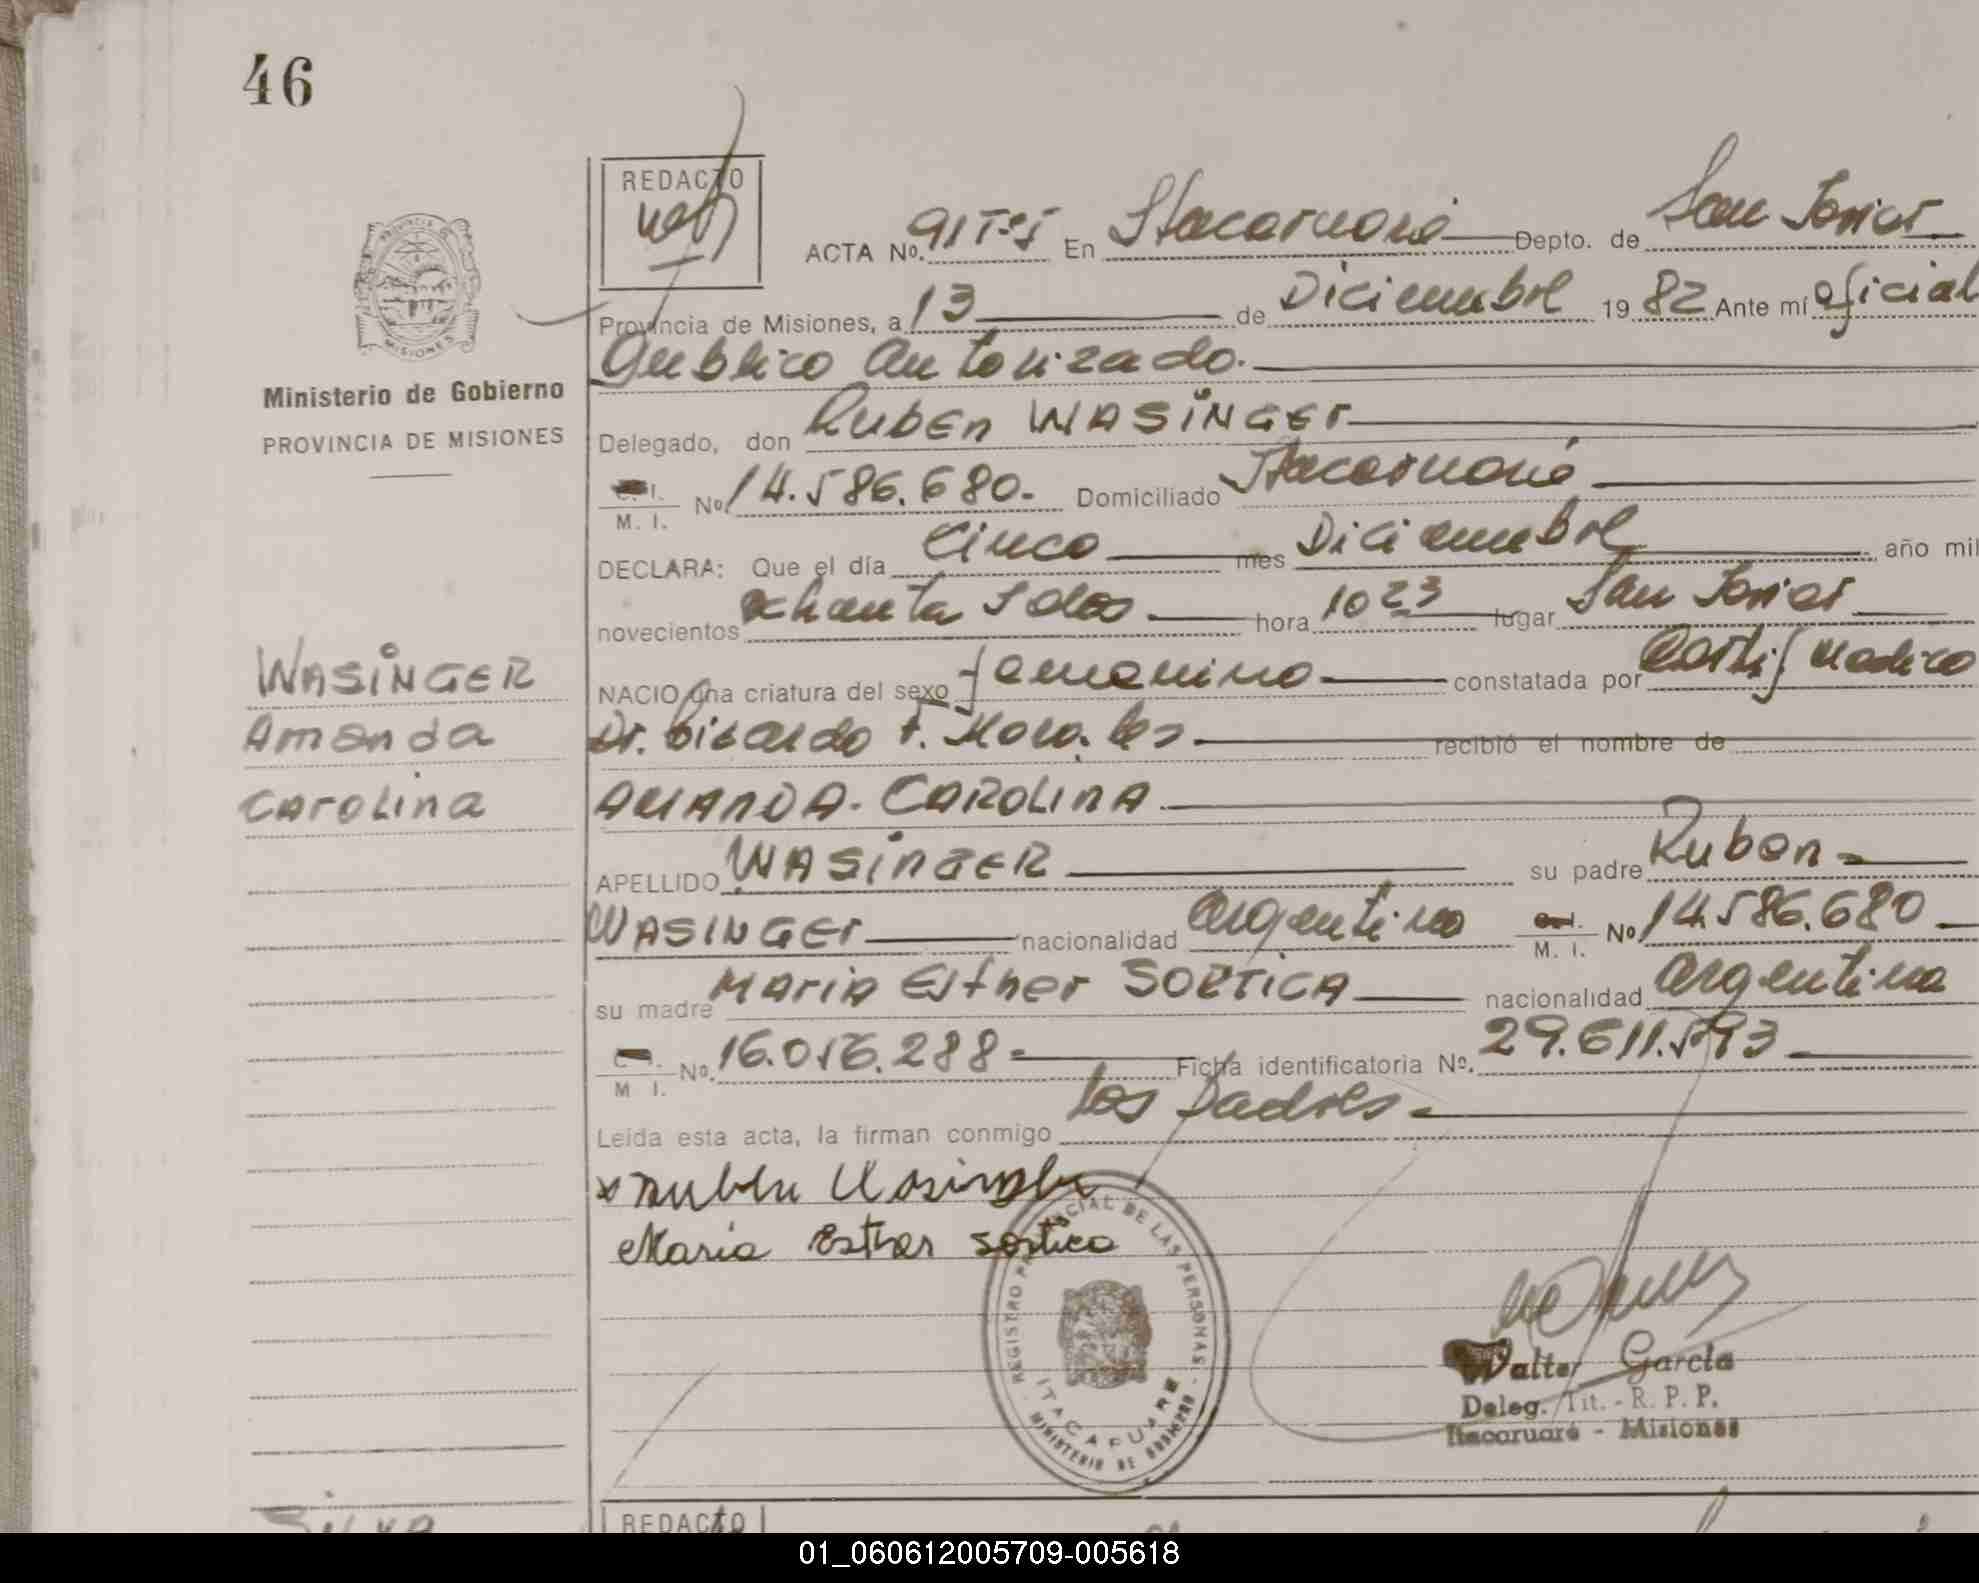 46
REDACTO
ACTA Nº. 91 T:I En Itacaruaré Depto. de San Javier
Provincia de Misiones, a 13 de Diciembre 1982 Ante mí Oficial
Publico Autorizado.
PROVINCIA DE
MISIONES
Ministerio de Gobierno
PROVINCIA DE MISIONES
Delegado, don Ruben WASINGER
C. I.
M. I. Nº 14.586.680. Domiciliado Itacaruaré
DECLARA: Que el día Cinco mes Diciembre año mil
novecientos ochenta y dos hora 10 23 lugar San Javier
NACIO una criatura del sexo femenino constatada por Certif Medico
Dr. Ricardo F. Morales recibió el nombre de
WASINGER
Amanda
Carolina
AMANDA. CAROLINA
APELLIDO WASINGER su padre Ruben
WASINGER nacionalidad argentina M. I. Nº 14.586.680
su madre Maria Esther SORTICA nacionalidad argentina
M. I. Nº. 16.016.288 Ficha identificatoria Nº. 29.611.593
Leída esta acta, la firman conmigo los Padres
x Ruben Wasinger
Maria Esther Sortica
REGISTRO PROVINCIAL DE LAS PERSONAS
ITACARUARE
MINISTERIO DE GOBIERNO
Walter Garcia
Deleg. Tit. - R. P. P.
Itacaruaré - Misiones
SILVA
REDACTO
01_060612005709-005618